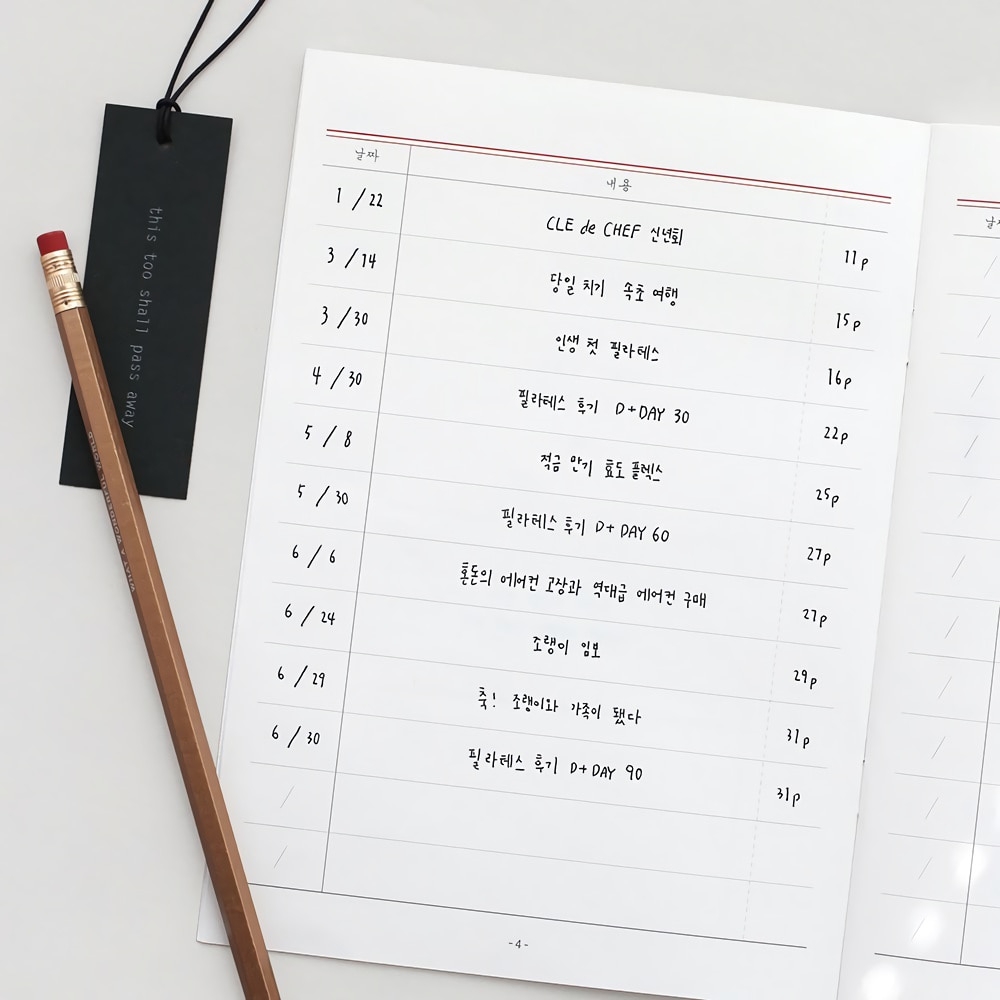 this too shall pass away
WHAT A WONDERFUL WORLD
날짜 내용
1 / 22 CLE de CHEF 신년회 11p
3 / 14 당일 치기 속초 여행 15p
3 / 30 인생 첫 필라테스 16p
4 / 30 필라테스 후기 D+DAY 30 22p
5 / 8 적금 만기 효도 플렉스 25p
5 / 30 필라테스 후기 D+DAY 60 27p
6 / 6 혼돈의 에어컨 고장과 역대급 에어컨 구매 27p
6 / 24 조랭이 임보 29p
6 / 29 축! 조랭이와 가족이 됐다 31p
6 / 30 필라테스 후기 D+DAY 90 31p
-4-